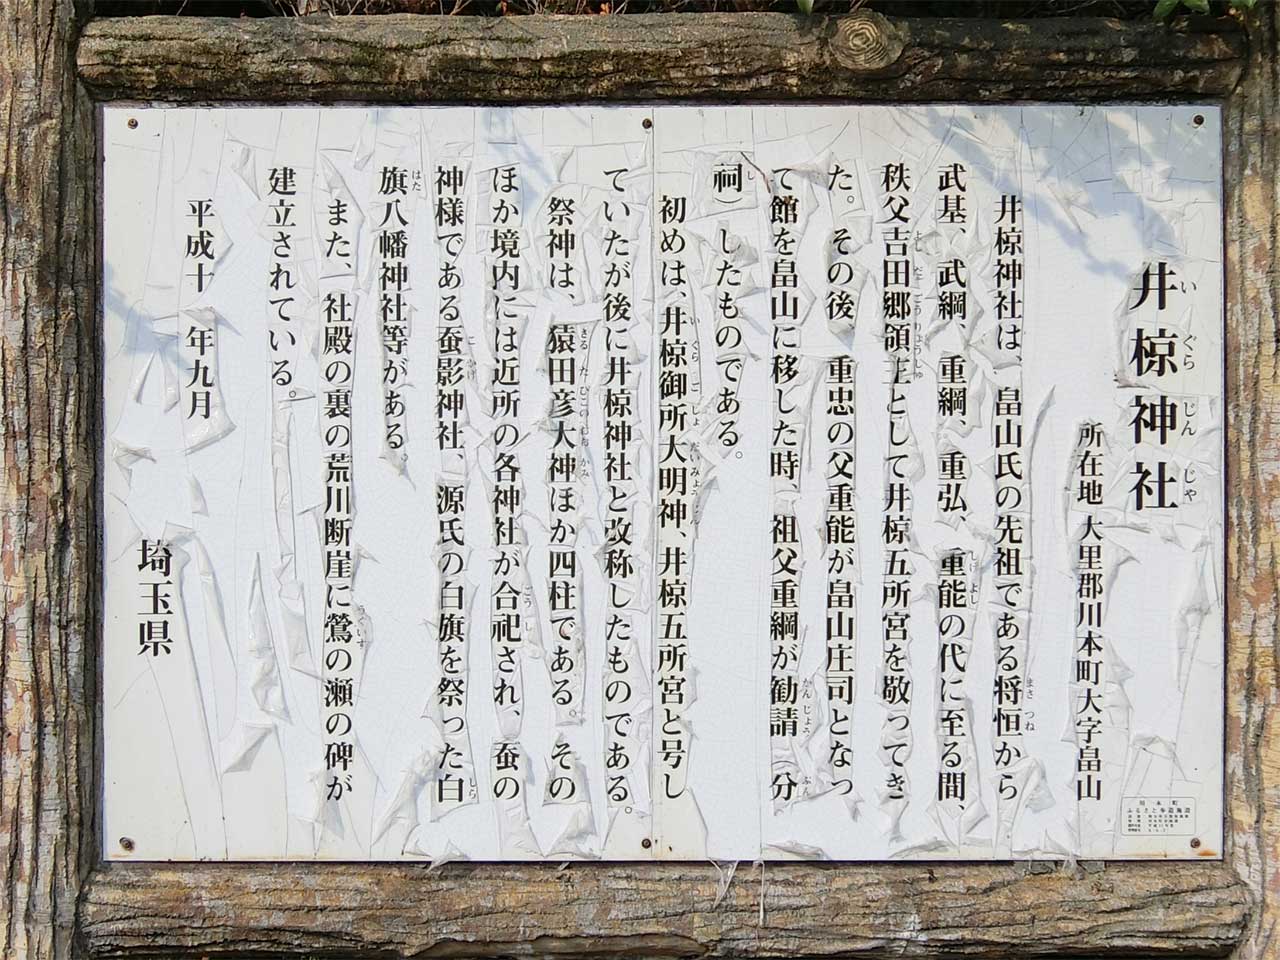 井椋神社
所在地 大里郡川本町大字畠山
井椋神社は、畠山氏の先祖である将恒から
武基、武綱、重綱、重弘、重能の代に至る間、
秩父吉田郷領主として井椋五所宮を敬ってき
た。その後、重忠の父重能が畠山庄司となっ
て館を畠山に移した時、祖父重綱が勧請 分
祠)したものである。
初めは、井椋御所大明神、井椋五所宮と号し
ていたが後に井椋神社と改称したものである。
祭神は、猿田彦大神ほか四柱である。その
ほか境内には近所の各神社が合祀され、蚕の
神様である蚕影神社、源氏の白旗を祭った白
旗八幡神社等がある。
また、社殿の裏の荒川断崖に鶯の瀬の碑が
建立されている。
平成十 年九月
埼玉県
川本町
ふるさと歩道施設